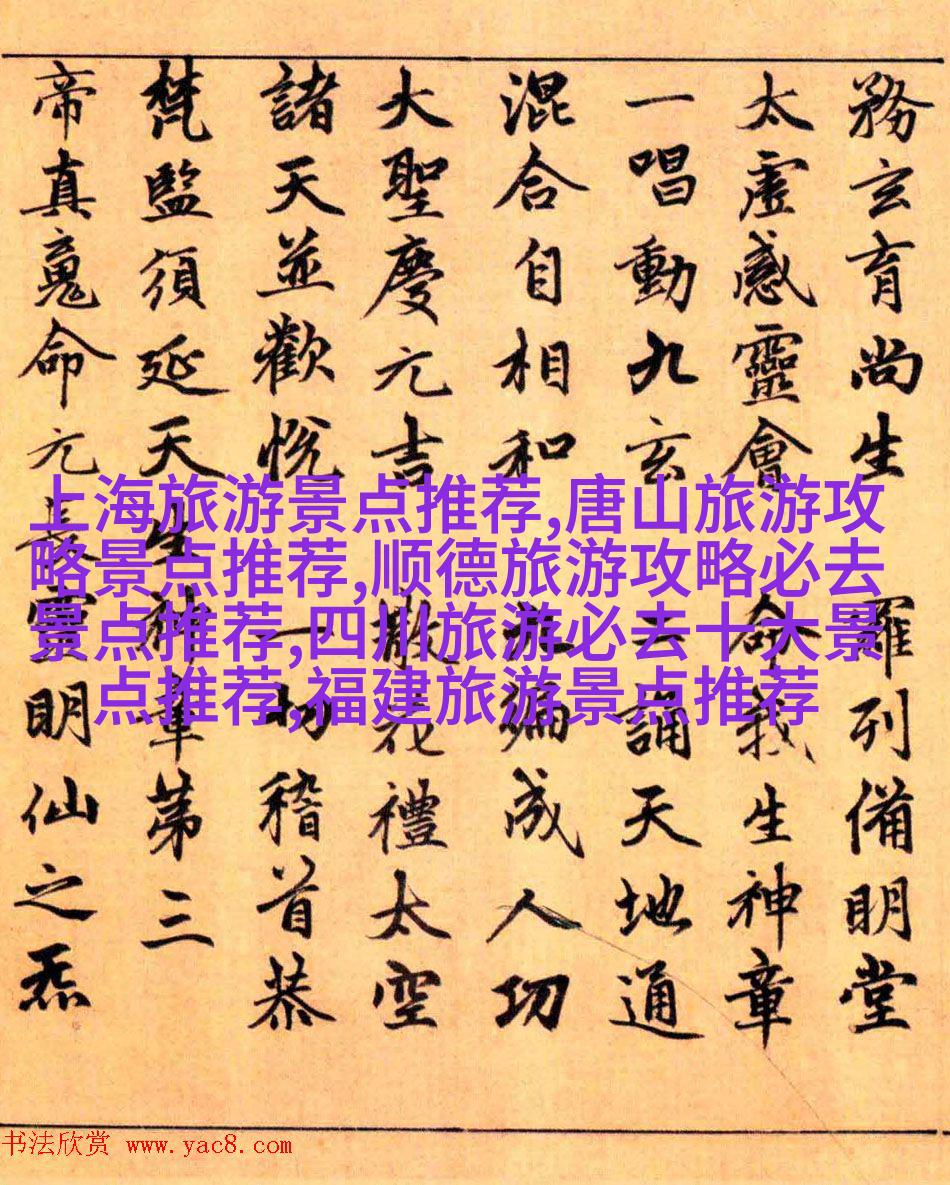 務玄育尚生　羅列備明堂
太虛感靈會　命我生神章
一唱動九玄　二誦天地通
混合自相和　九遍成人功
大聖慶元吉　散花禮太空
諸天並歡悅　一切稽首恭
梵監須延天生神章第三
帝真魂命元長靈明仙之炁
上海旅游景点推荐,唐山旅游攻
略景点推荐,顺德旅游攻略必去
景点推荐,四川旅游必去十大景
点推荐,福建旅游景点推荐
书法欣赏 www.yac8.com